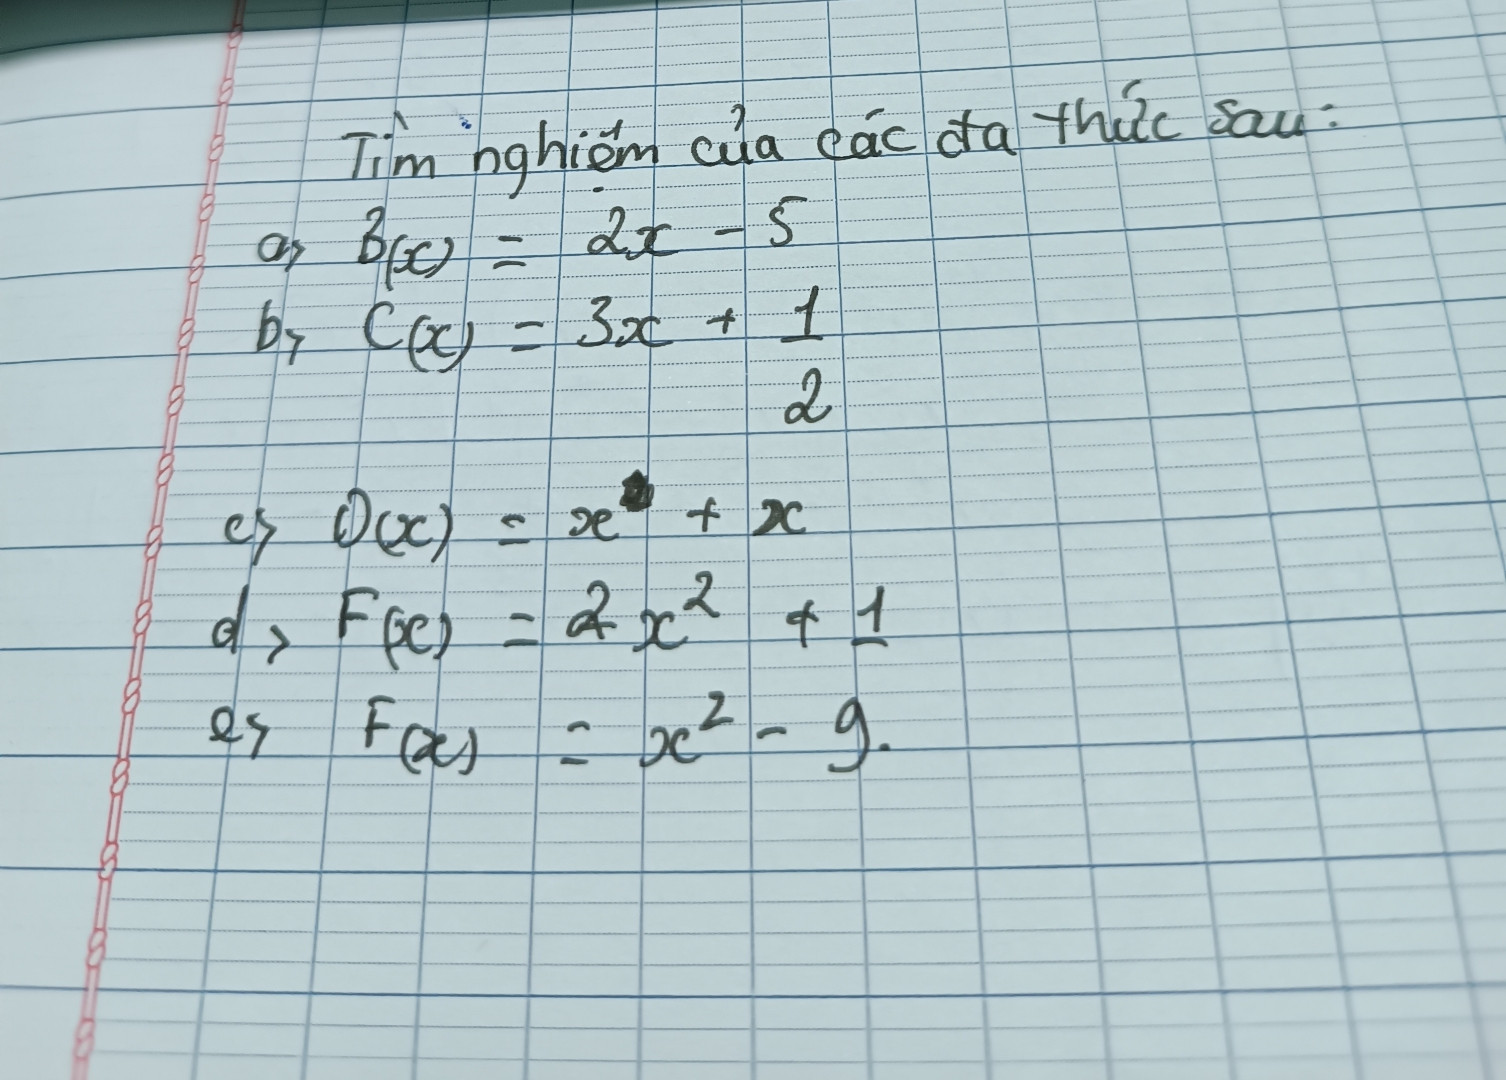 Tìm nghiệm của các đa thức sau:
a, B(x) = 2x - 5
b, C(x) = 3x + 1
2
c, D(x) = x + x
d, F(x) = 2x² + 1
e, F(x) = x² - 9.